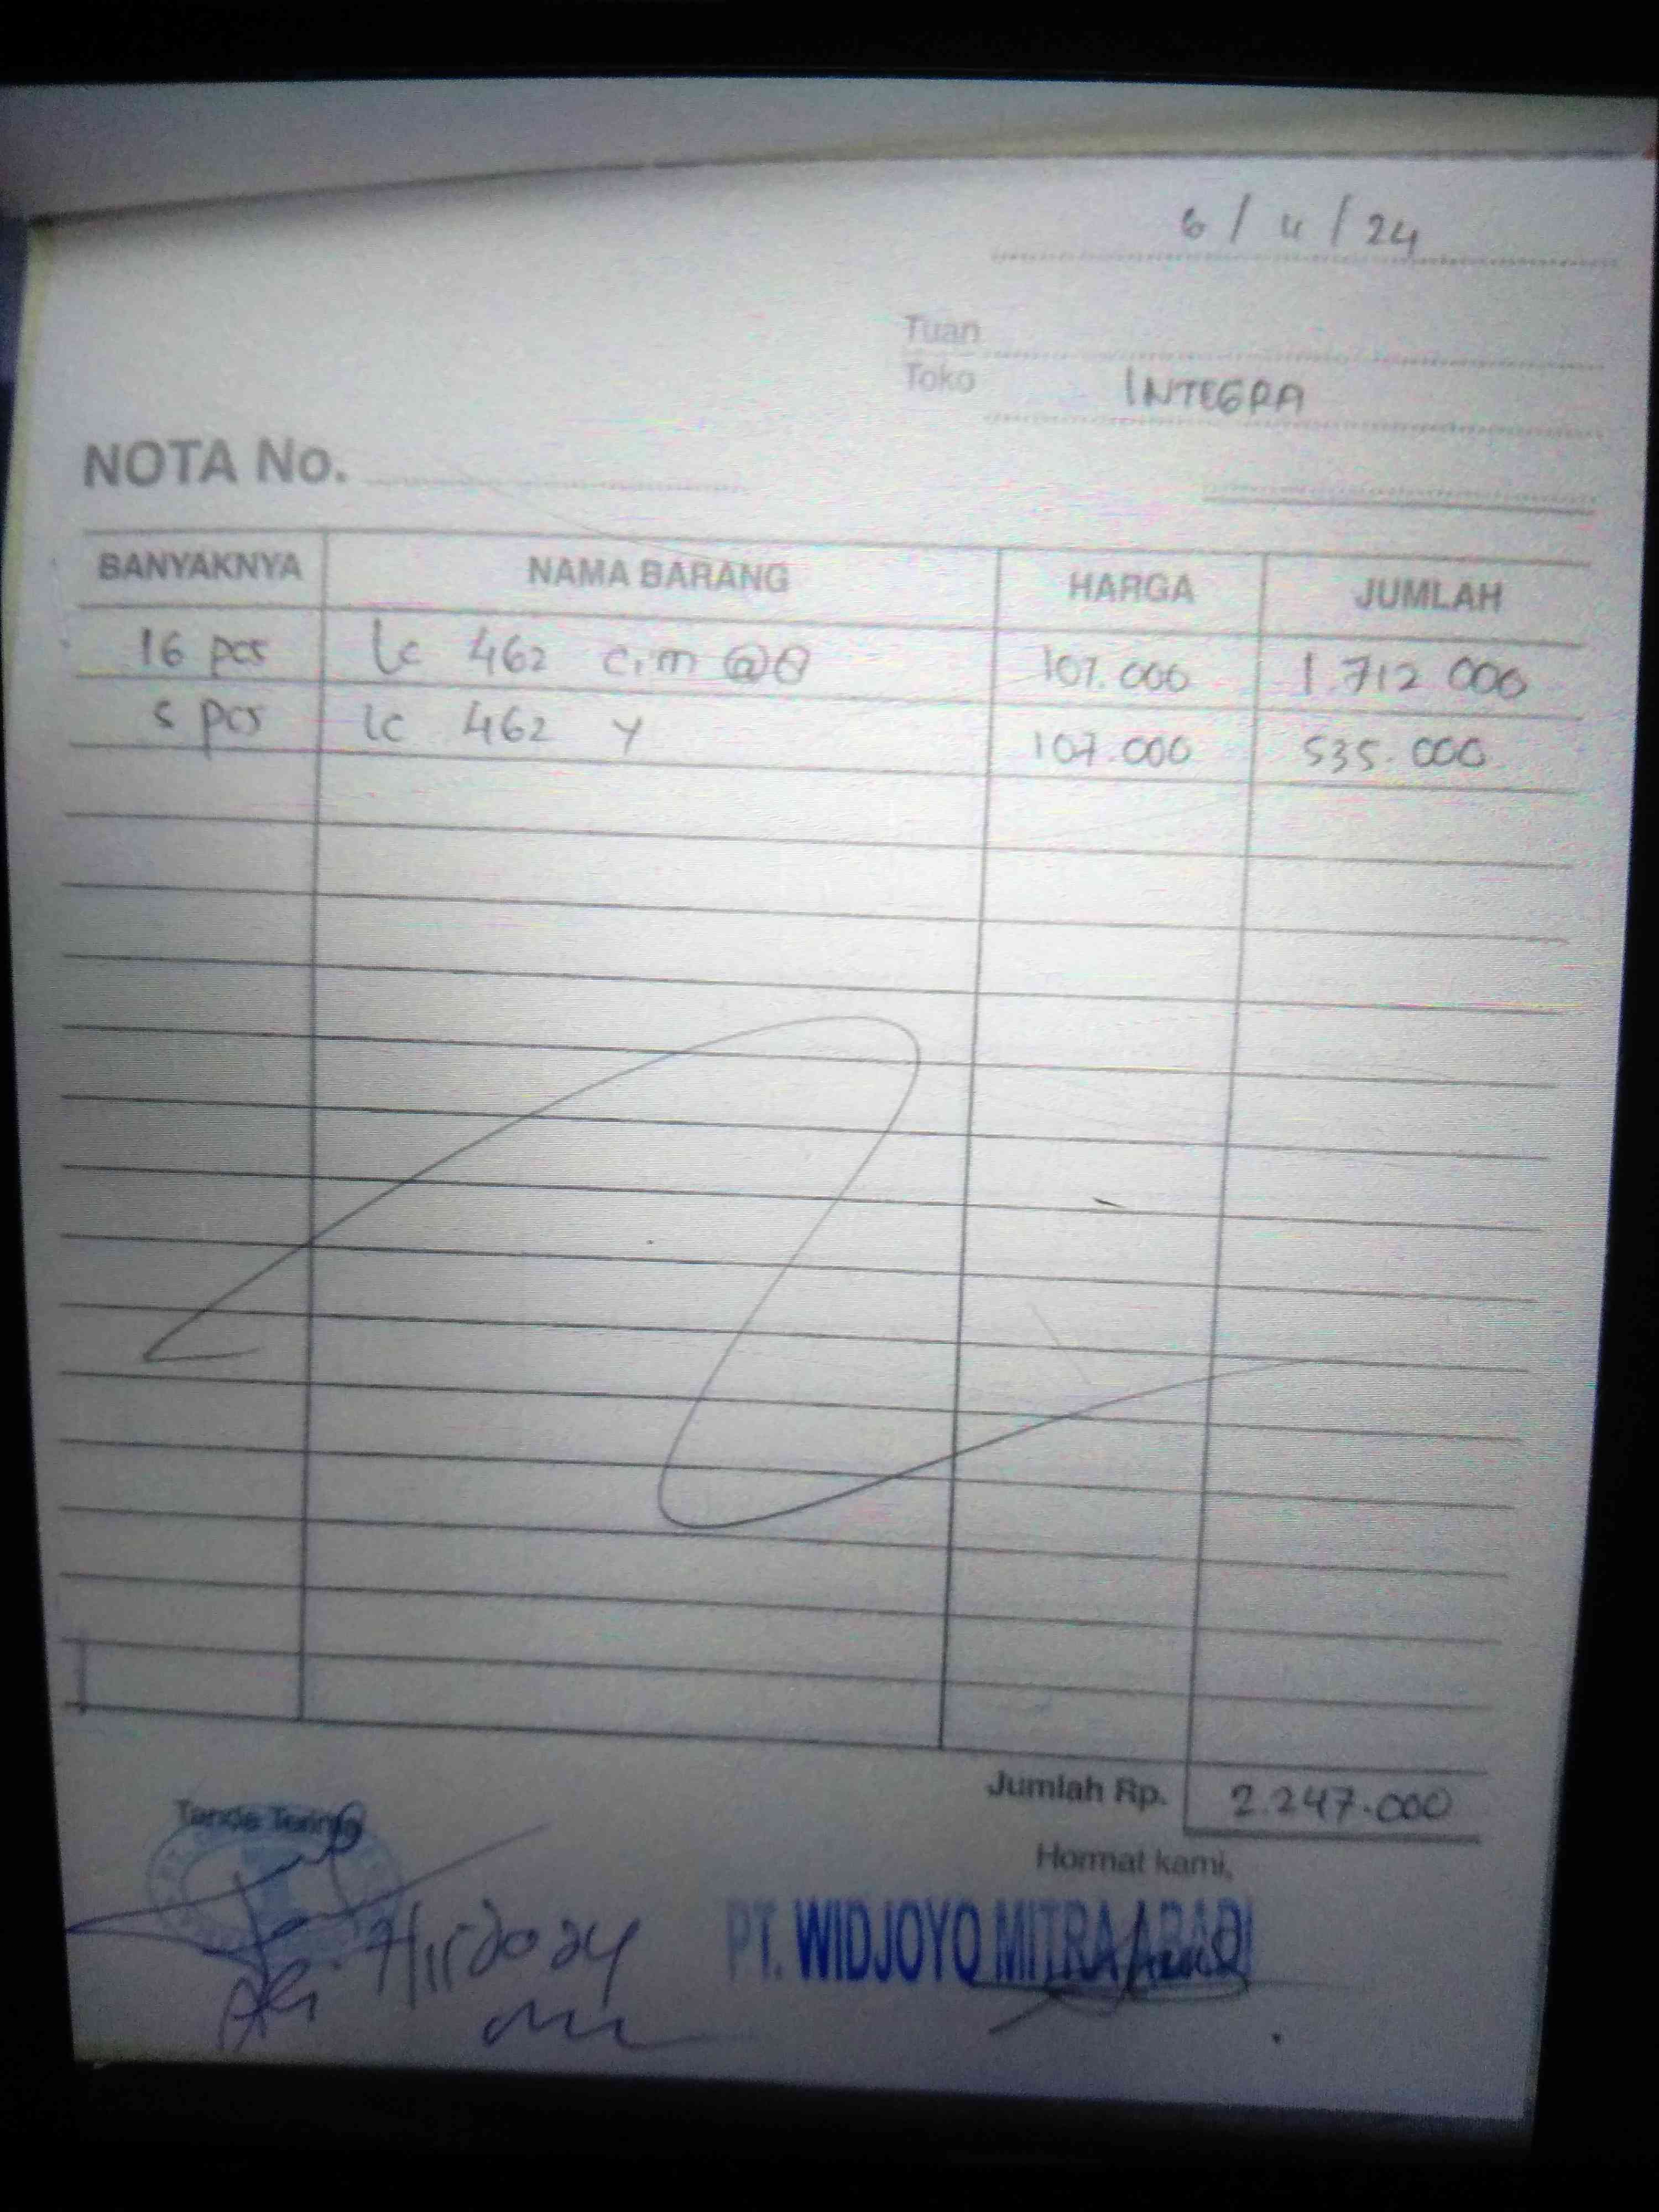 6 / 11 / 24
Tuan
Toko INTEGRA
NOTA No.
BANYAKNYA NAMA BARANG HARGA JUMLAH
16 pcs lc 462 c,m @8 107.000 1.712 000
5 pcs lc 462 Y 107.000 535.000
Jumlah Rp. 2.247.000
Tanda Terima
Hormat kami,
PT. WIDJOYO MITRA ABADI
7/11 2024